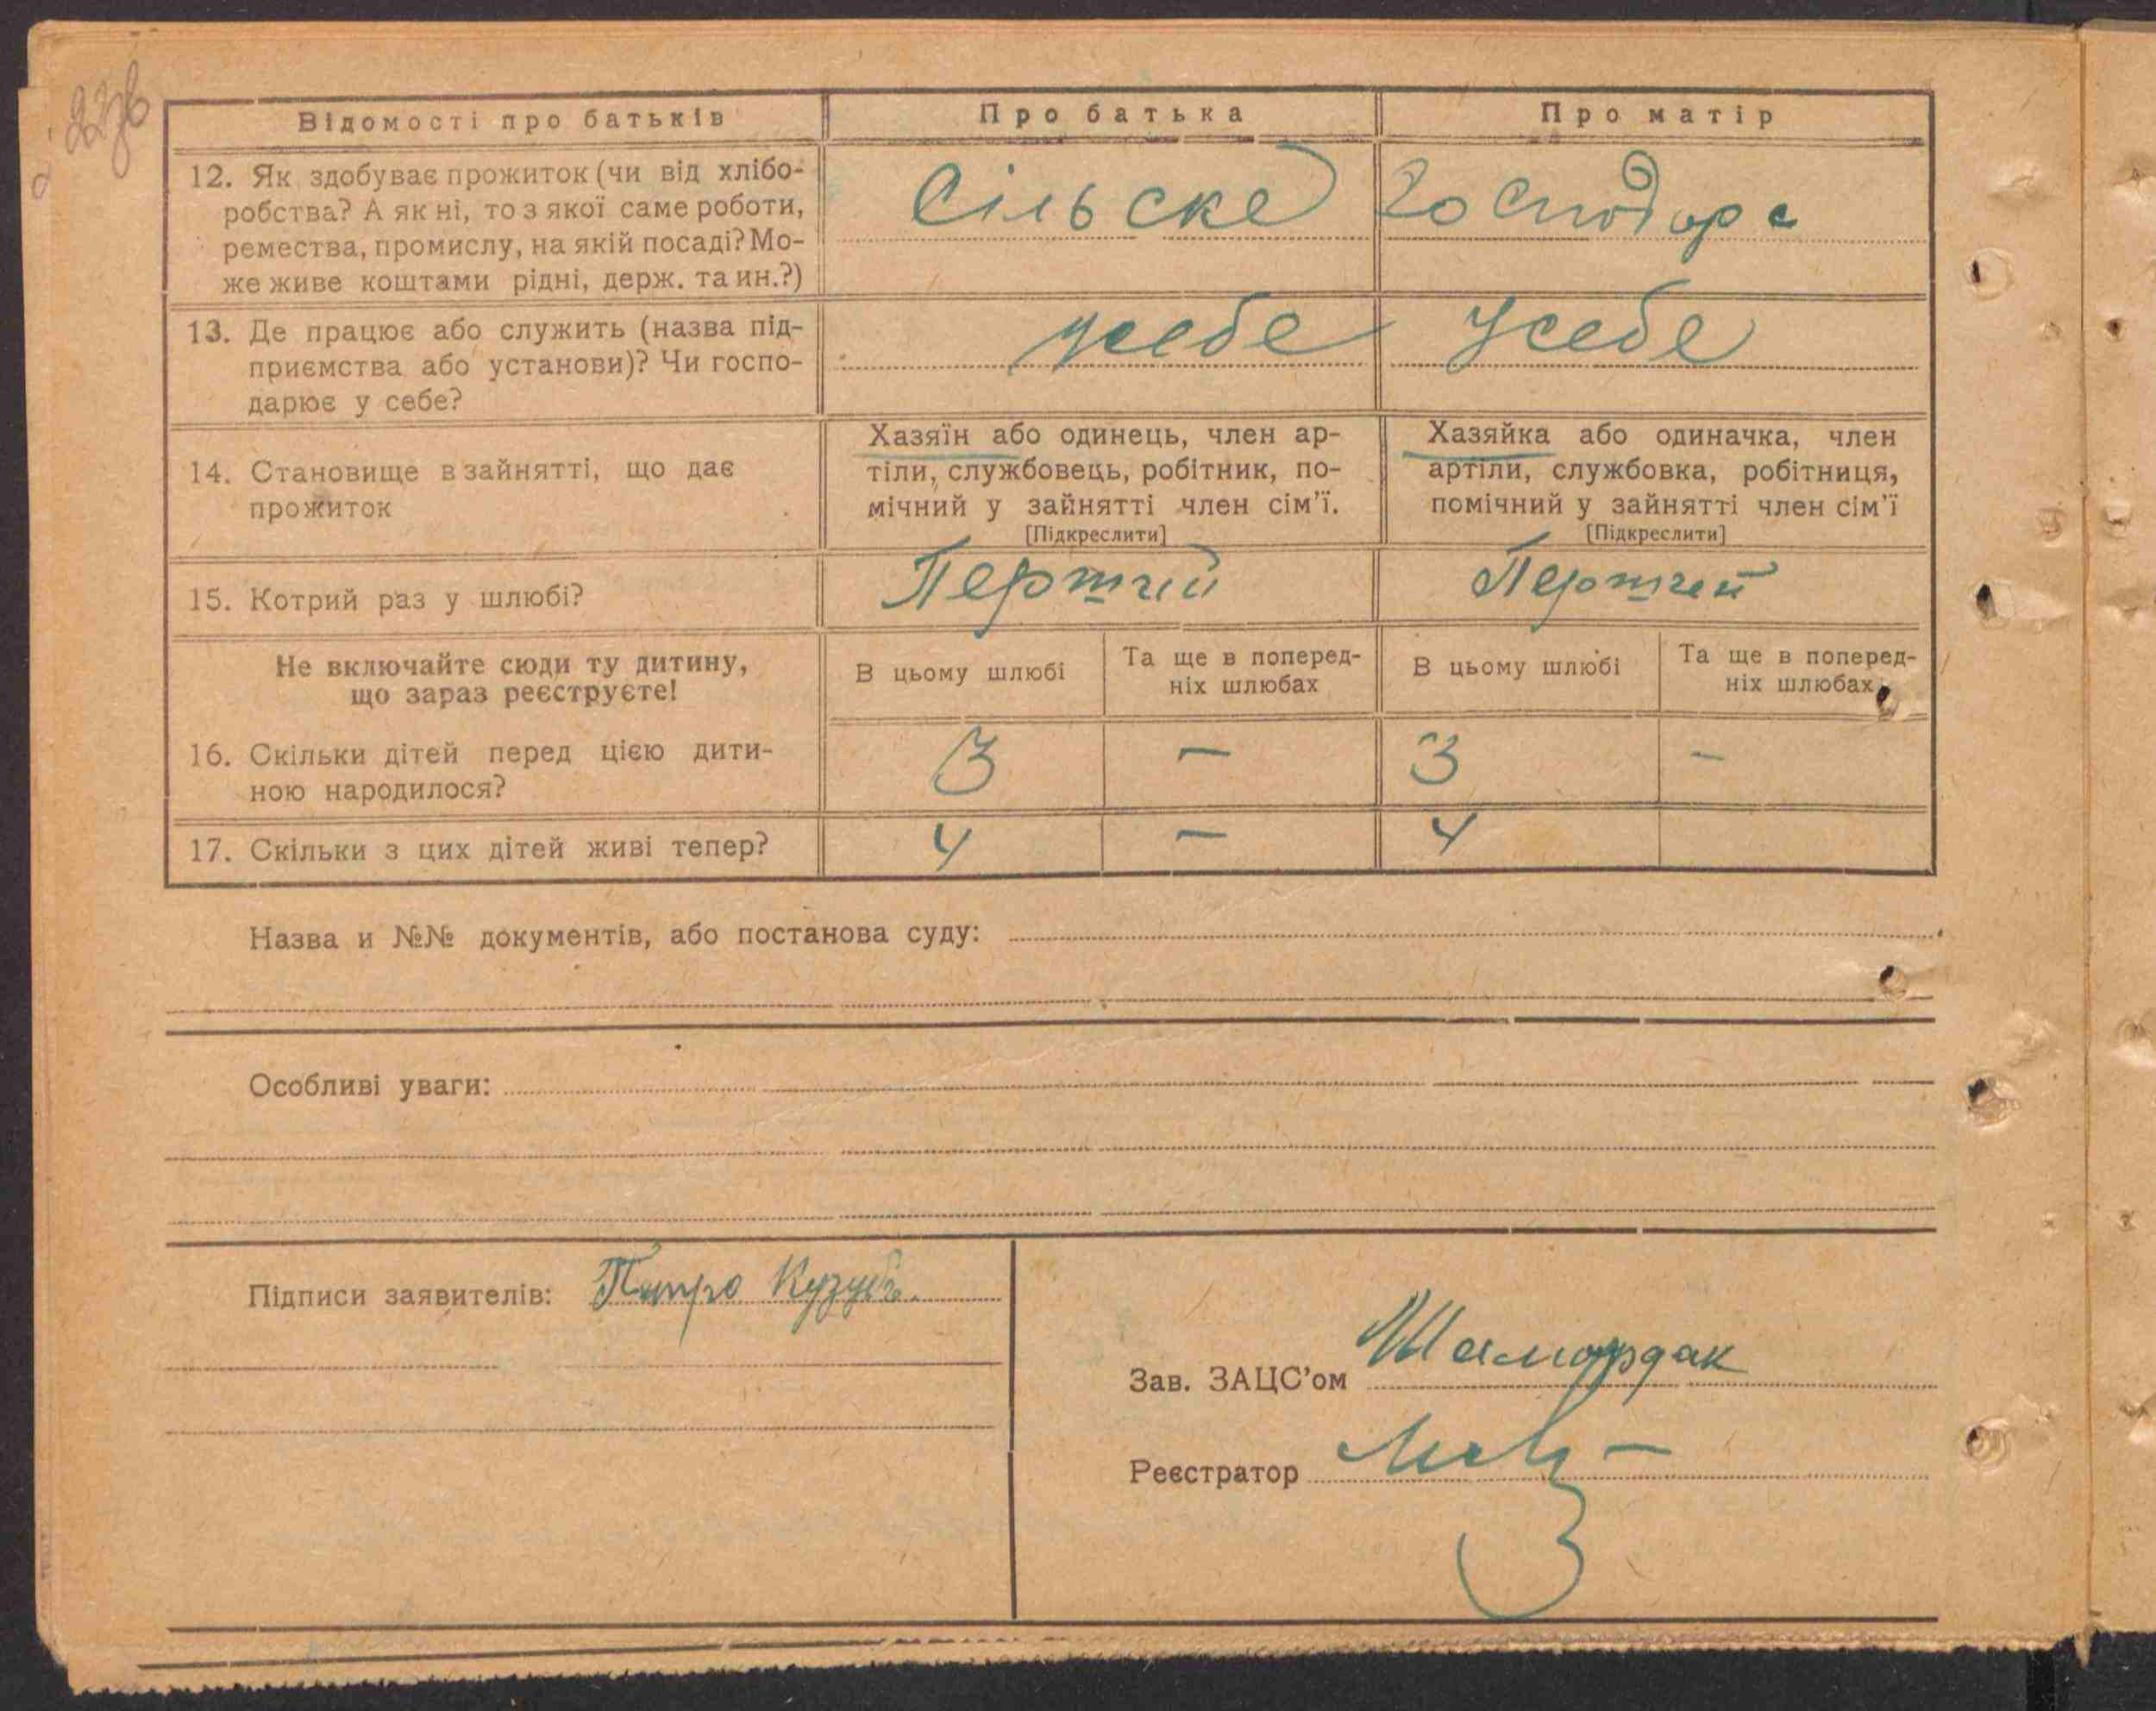 Відомості про батьків
Про батька
Про матір
12. Як здобуває прожиток (чи від хлібо-
робства? А як ні, то з якої саме роботи,
ремества, промислу, на якій посаді? Мо-
же живе коштами рідні, держ. та ин.?)
Сільске
Господарс
13. Де працює або служить (назва під-
приємства або установи)? Чи госпо-
дарює у себе?
усебе
Усебе
14. Становище в зайнятті, що дає
прожиток
Хазяїн або одинець, член ар-
тіли, службовець, робітник, по-
мічний у зайнятті член сім'ї.
[Підкреслити]
Хазяйка або одиначка, член
артіли, службовка, робітниця,
помічний у зайнятті член сім'ї
[Підкреслити]
15. Котрий раз у шлюбі?
Перший
Перший
Не включайте сюди ту дитину,
що зараз реєструєте!
В цьому шлюбі
Та ще в поперед-
ніх шлюбах
В цьому шлюбі
Та ще в поперед-
ніх шлюбах
16. Скільки дітей перед цією дити-
ною народилося?
3
–
3
–
17. Скільки з цих дітей живі тепер?
4
–
4
Назва и №№ документів, або постанова суду:
Особливі уваги:
Підписи заявителів: Петро Кузубъ.
Зав. ЗАЦС'ом
Реєстратор